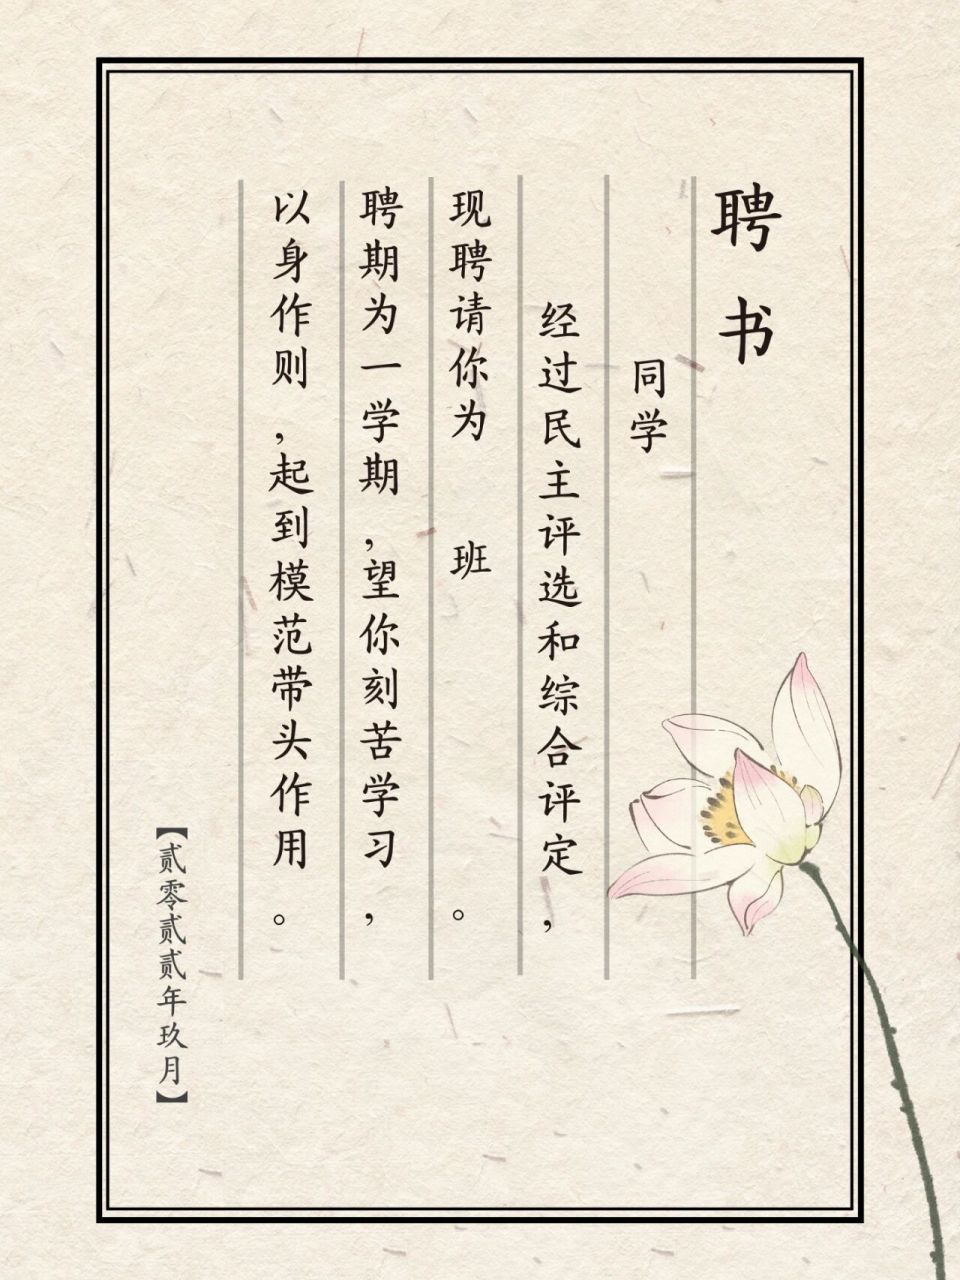 聘书
同学
经过民主评选和综合评定，
现聘请你为 班 。
聘期为一学期，望你刻苦学习，
以身作则，起到模范带头作用。
【贰零贰贰年玖月】